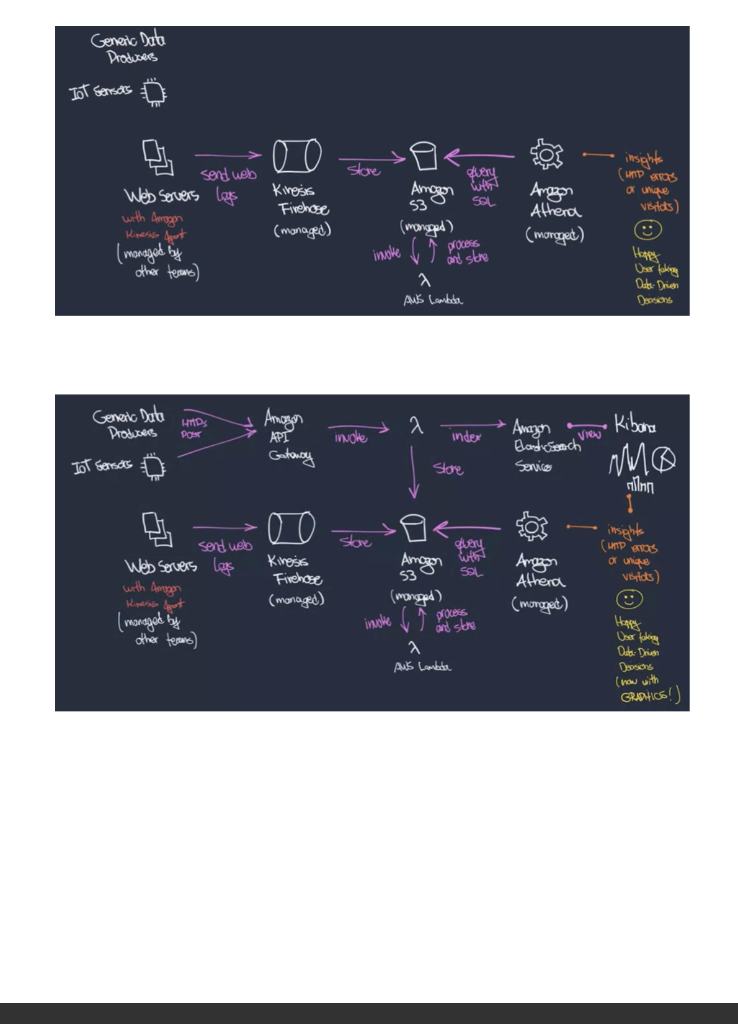 Generic Data
Producers
IoT Sensors
send web
logs
Store
query
with
SQL
insights
(HTTP errors
or unique
visitors)
Web Servers
with Amazon
Kinesis Agent
(managed by
other teams)
Kinesis
Firehose
(managed)
Amazon
S3
(managed)
Amazon
Athena
(managed)
invoke
process
and store
λ
AWS Lambda
Happy
User taking
Data-Driven
Decisions
Generic Data
Producers
IoT Sensors
HTTPs
POST
Amazon
API
Gateway
invoke
λ
index
Store
Amazon
ElasticSearch
Service
view
Kibana
send web
logs
Store
query
with
SQL
insights
(HTTP errors
or unique
visitors)
Web Servers
with Amazon
Kinesis Agent
(managed by
other teams)
Kinesis
Firehose
(managed)
Amazon
S3
(managed)
Amazon
Athena
(managed)
invoke
process
and store
λ
AWS Lambda
Happy
User taking
Data-Driven
Decisions
(now with
GRAPHICS!)